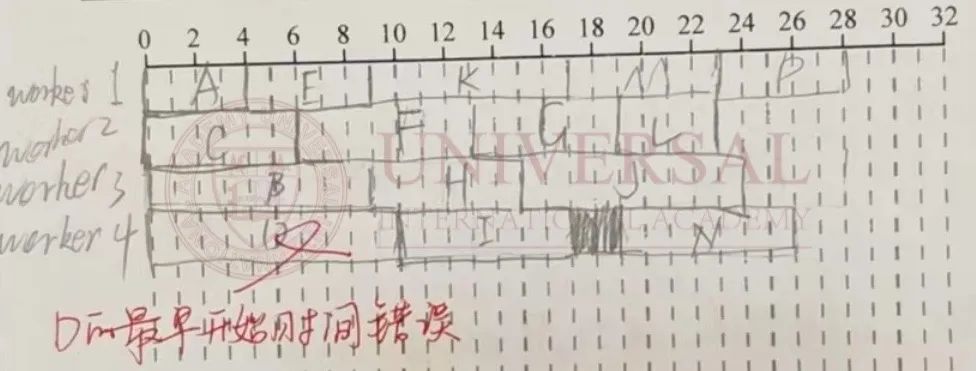 0 2 4 6 8 10 12 14 16 18 20 22 24 26 28 30 32
worker 1 A E K M P
worker 2 C F G L
worker 3 B H J
worker 4 D I N
UNIVERSAL
INTERNATIONAL ACADEMY
D的最早开始时间错误